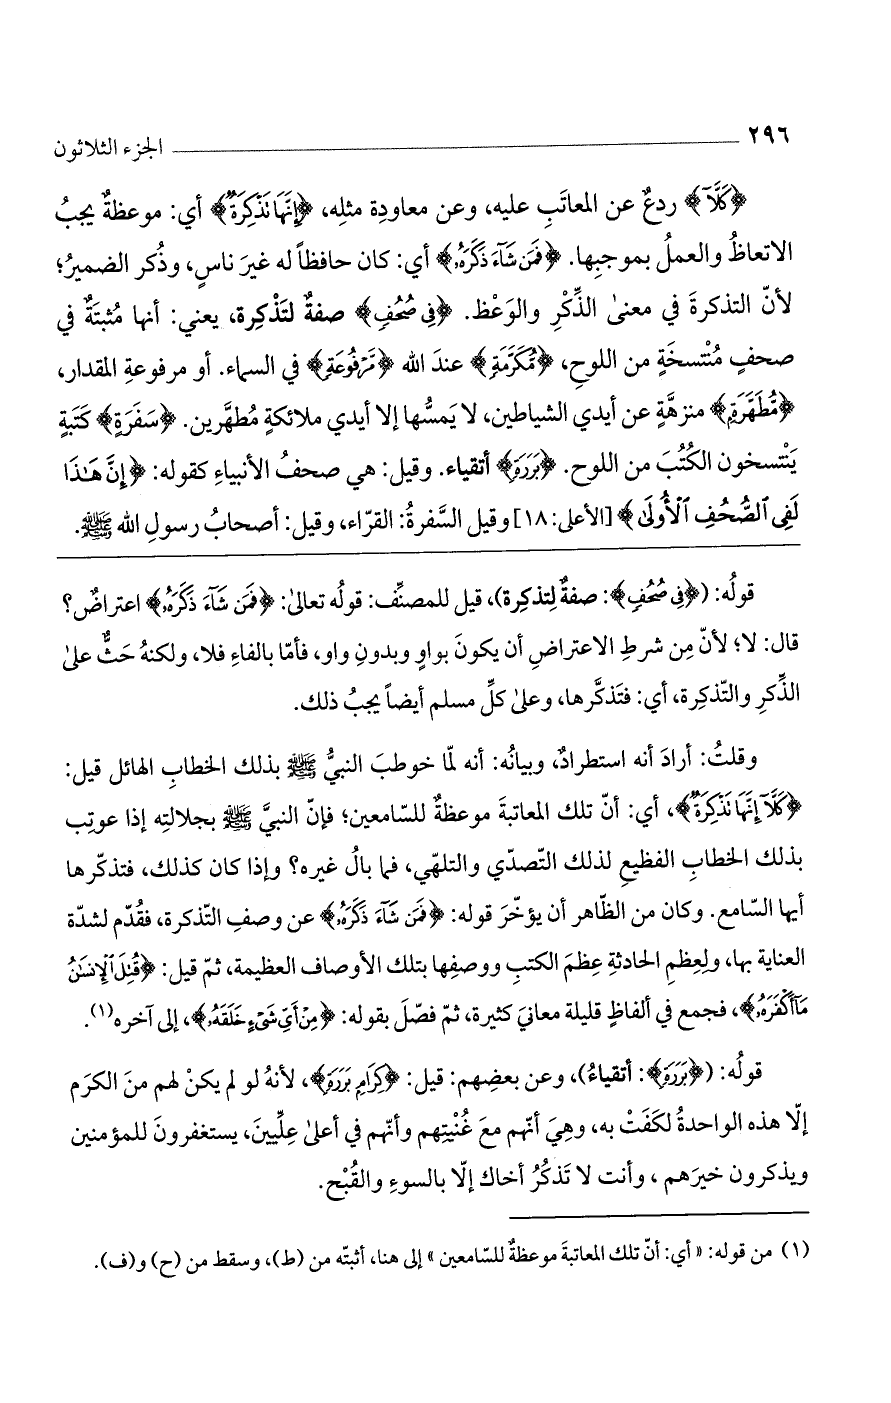 ٢٩٦ الجزء الثلاثون
﴿كَلَّآ﴾ ردعٌ عن المعاتَبِ عليه، وعن معاودِة مثلِه، ﴿إِنَّهَا تَذْكِرَةٌ﴾ أي: موعظةٌ يجبُ
الاتعاظُ والعملُ بموجبِها. ﴿فَمَن شَآءَ ذَكَرَهُۥ﴾ أي: كان حافظاً له غيرَ ناسٍ، وذُكر الضميرُ؛
لأنّ التذكرةَ في معنىٰ الذِّكْرِ والوَعْظ. ﴿فِى صُحُفٍ﴾ صفةٌ لتَذْكِرة، يعني: أنها مُثبتَةٌ في
صحفٍ مُنْتسخَةٍ من اللوحِ، ﴿مُّكَرَّمَةٍ﴾ عندَ الله ﴿مَّرْفُوعَةٍ﴾ في السماء. أو مرفوعةِ المقدار،
﴿مُّطَهَّرَةٍ﴾ منزهَّةٍ عن أيدي الشياطين، لا يَمسُّها إلا أيدي ملائكةٍ مُطهَّرين. ﴿سَفَرَةٍ﴾ كَتَبةٍ
يَنْتسخون الكُتُبَ من اللوح. ﴿بَرَرَةٍ﴾ أتقياء. وقيل: هي صحفُ الأنبياءِ كقوله: ﴿إِنَّ هَـٰذَا
لَفِى ٱلصُّحُفِ ٱلْأُولَىٰ﴾ [الأعلى: ١٨] وقيل السَّفرةُ: القرّاء، وقيل: أصحابُ رسولِ الله ﷺ.
قولُه: (﴿فِى صُحُفٍ﴾: صفةٌ لِتذكِرة)، قيل للمصنِّف: قوله تعالىٰ: ﴿فَمَن شَآءَ ذَكَرَهُۥ﴾ اعتراضٌ؟
قال: لا؛ لأنّ مِن شرطِ الاعتراضِ أن يكونَ بواوٍ وبدونِ واو، فأمّا بالفاءِ فلا، ولكنهُ حَثٌّ علىٰ
الذِّكرِ والتّذكِرة، أي: فتَذكَّرها، وعلىٰ كلِّ مسلم أيضاً يجبُ ذلك.
وقلتُ: أرادَ أنه استطرادٌ، وبيانُه: أنه لمّا خوطبَ النبيُّ ﷺ بذلك الخطابِ الهائل قيل:
﴿كَلَّآ إِنَّهَا تَذْكِرَةٌ﴾، أي: أنّ تلك المعاتبةَ موعظةٌ للسّامعين؛ فإنّ النبيَّ ﷺ بجلالتِه إذا عوتِب
بذلك الخطابِ الفظيعِ لذلك التّصدّي والتلهّي، فما بالُ غيره؟ وإذا كان كذلك، فتذكّرها
أيها السّامع. وكان من الظّاهر أن يؤخّرَ قوله: ﴿فَمَن شَآءَ ذَكَرَهُۥ﴾ عن وصفِ التّذكرة، فقُدّم لشدّة
العناية بها، ولِعِظمِ الحادثةِ عِظمَ الكتبِ ووصفِها بتلك الأوصاف العظيمة، ثمّ قيل: ﴿قُتِلَ ٱلْإِنسَـٰنُ
مَآ أَكْفَرَهُۥ﴾، فجمع في ألفاظٍ قليلة معانيَ كثيرة، ثمّ فصّلَ بقوله: ﴿مِنْ أَىِّ شَىْءٍ خَلَقَهُۥ﴾، إلى آخره(١).
قولُه: (﴿بَرَرَةٍ﴾: أتقياءُ)، وعن بعضِهم: قيل: ﴿كِرَامٍ بَرَرَةٍ﴾، لأنهُ لو لم يكنْ لهم منَ الكرَم
إلّا هذه الواحدةُ لكَفَتْ به، وهِيَ أنّهم معَ غُنْيتِهم وأنّهم في أعلىٰ عِلِّيينَ، يستغفرونَ للمؤمنين
ويذكرون خيرَهم، وأنت لا تَذكُرُ أخاك إلّا بالسوءِ والقُبْح.
(١) من قوله: «أي: أنّ تلك المعاتبةَ موعظةٌ للسّامعين» إلى هنا، أثبتّه من (ط)، وسقط من (ح) و(ف).